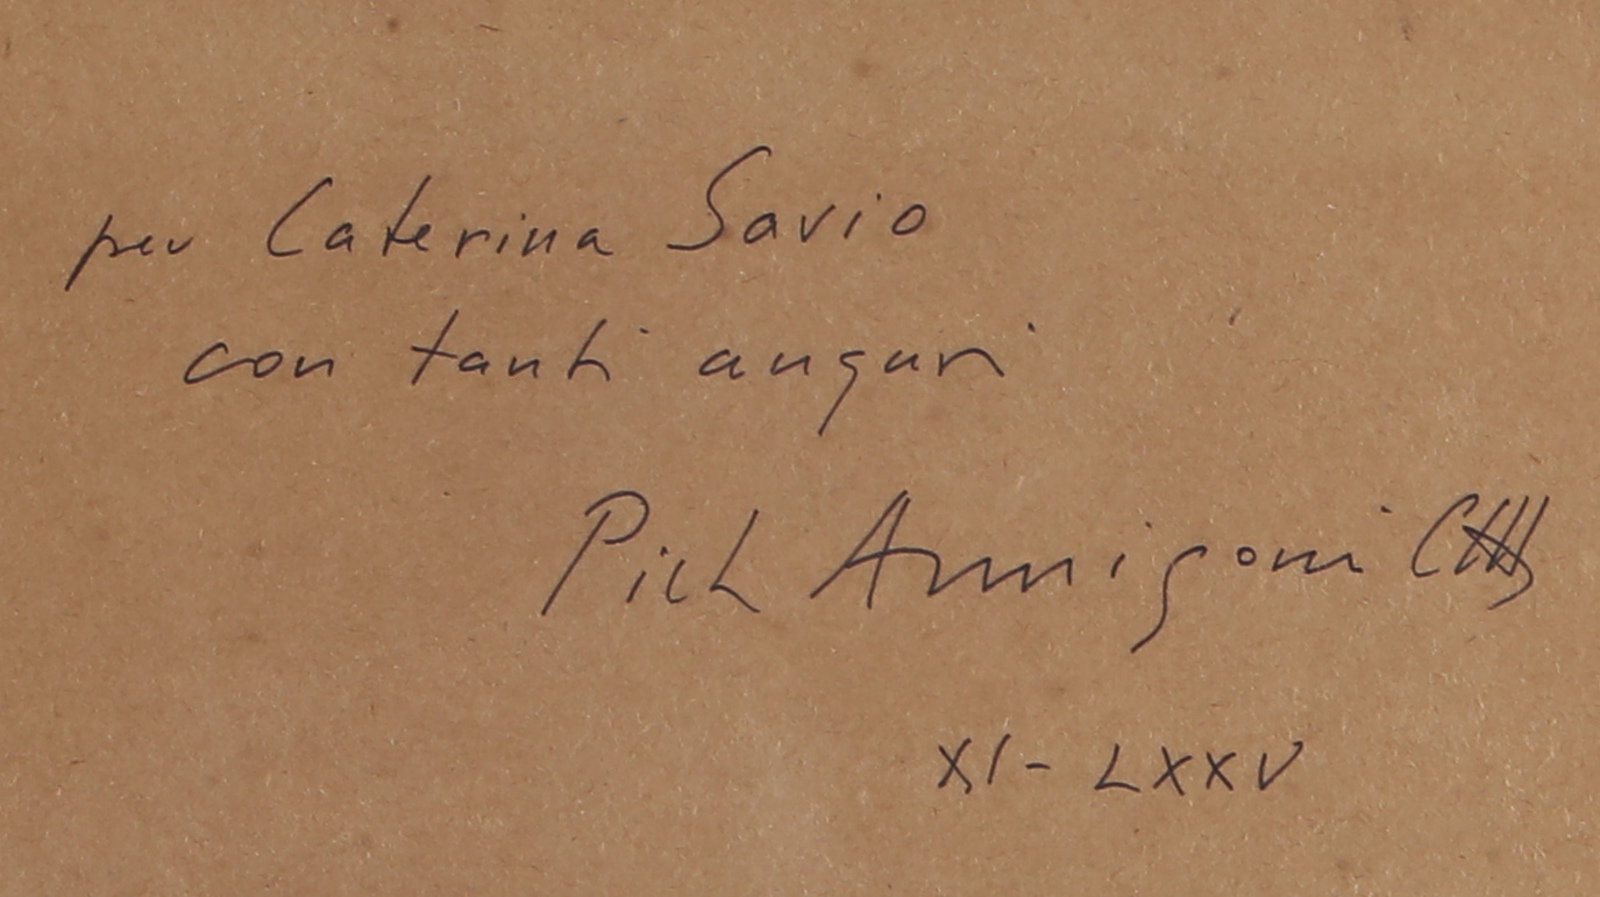 per Caterina Savio
con tanti auguri
Pietro Annigoni
XI - LXXV